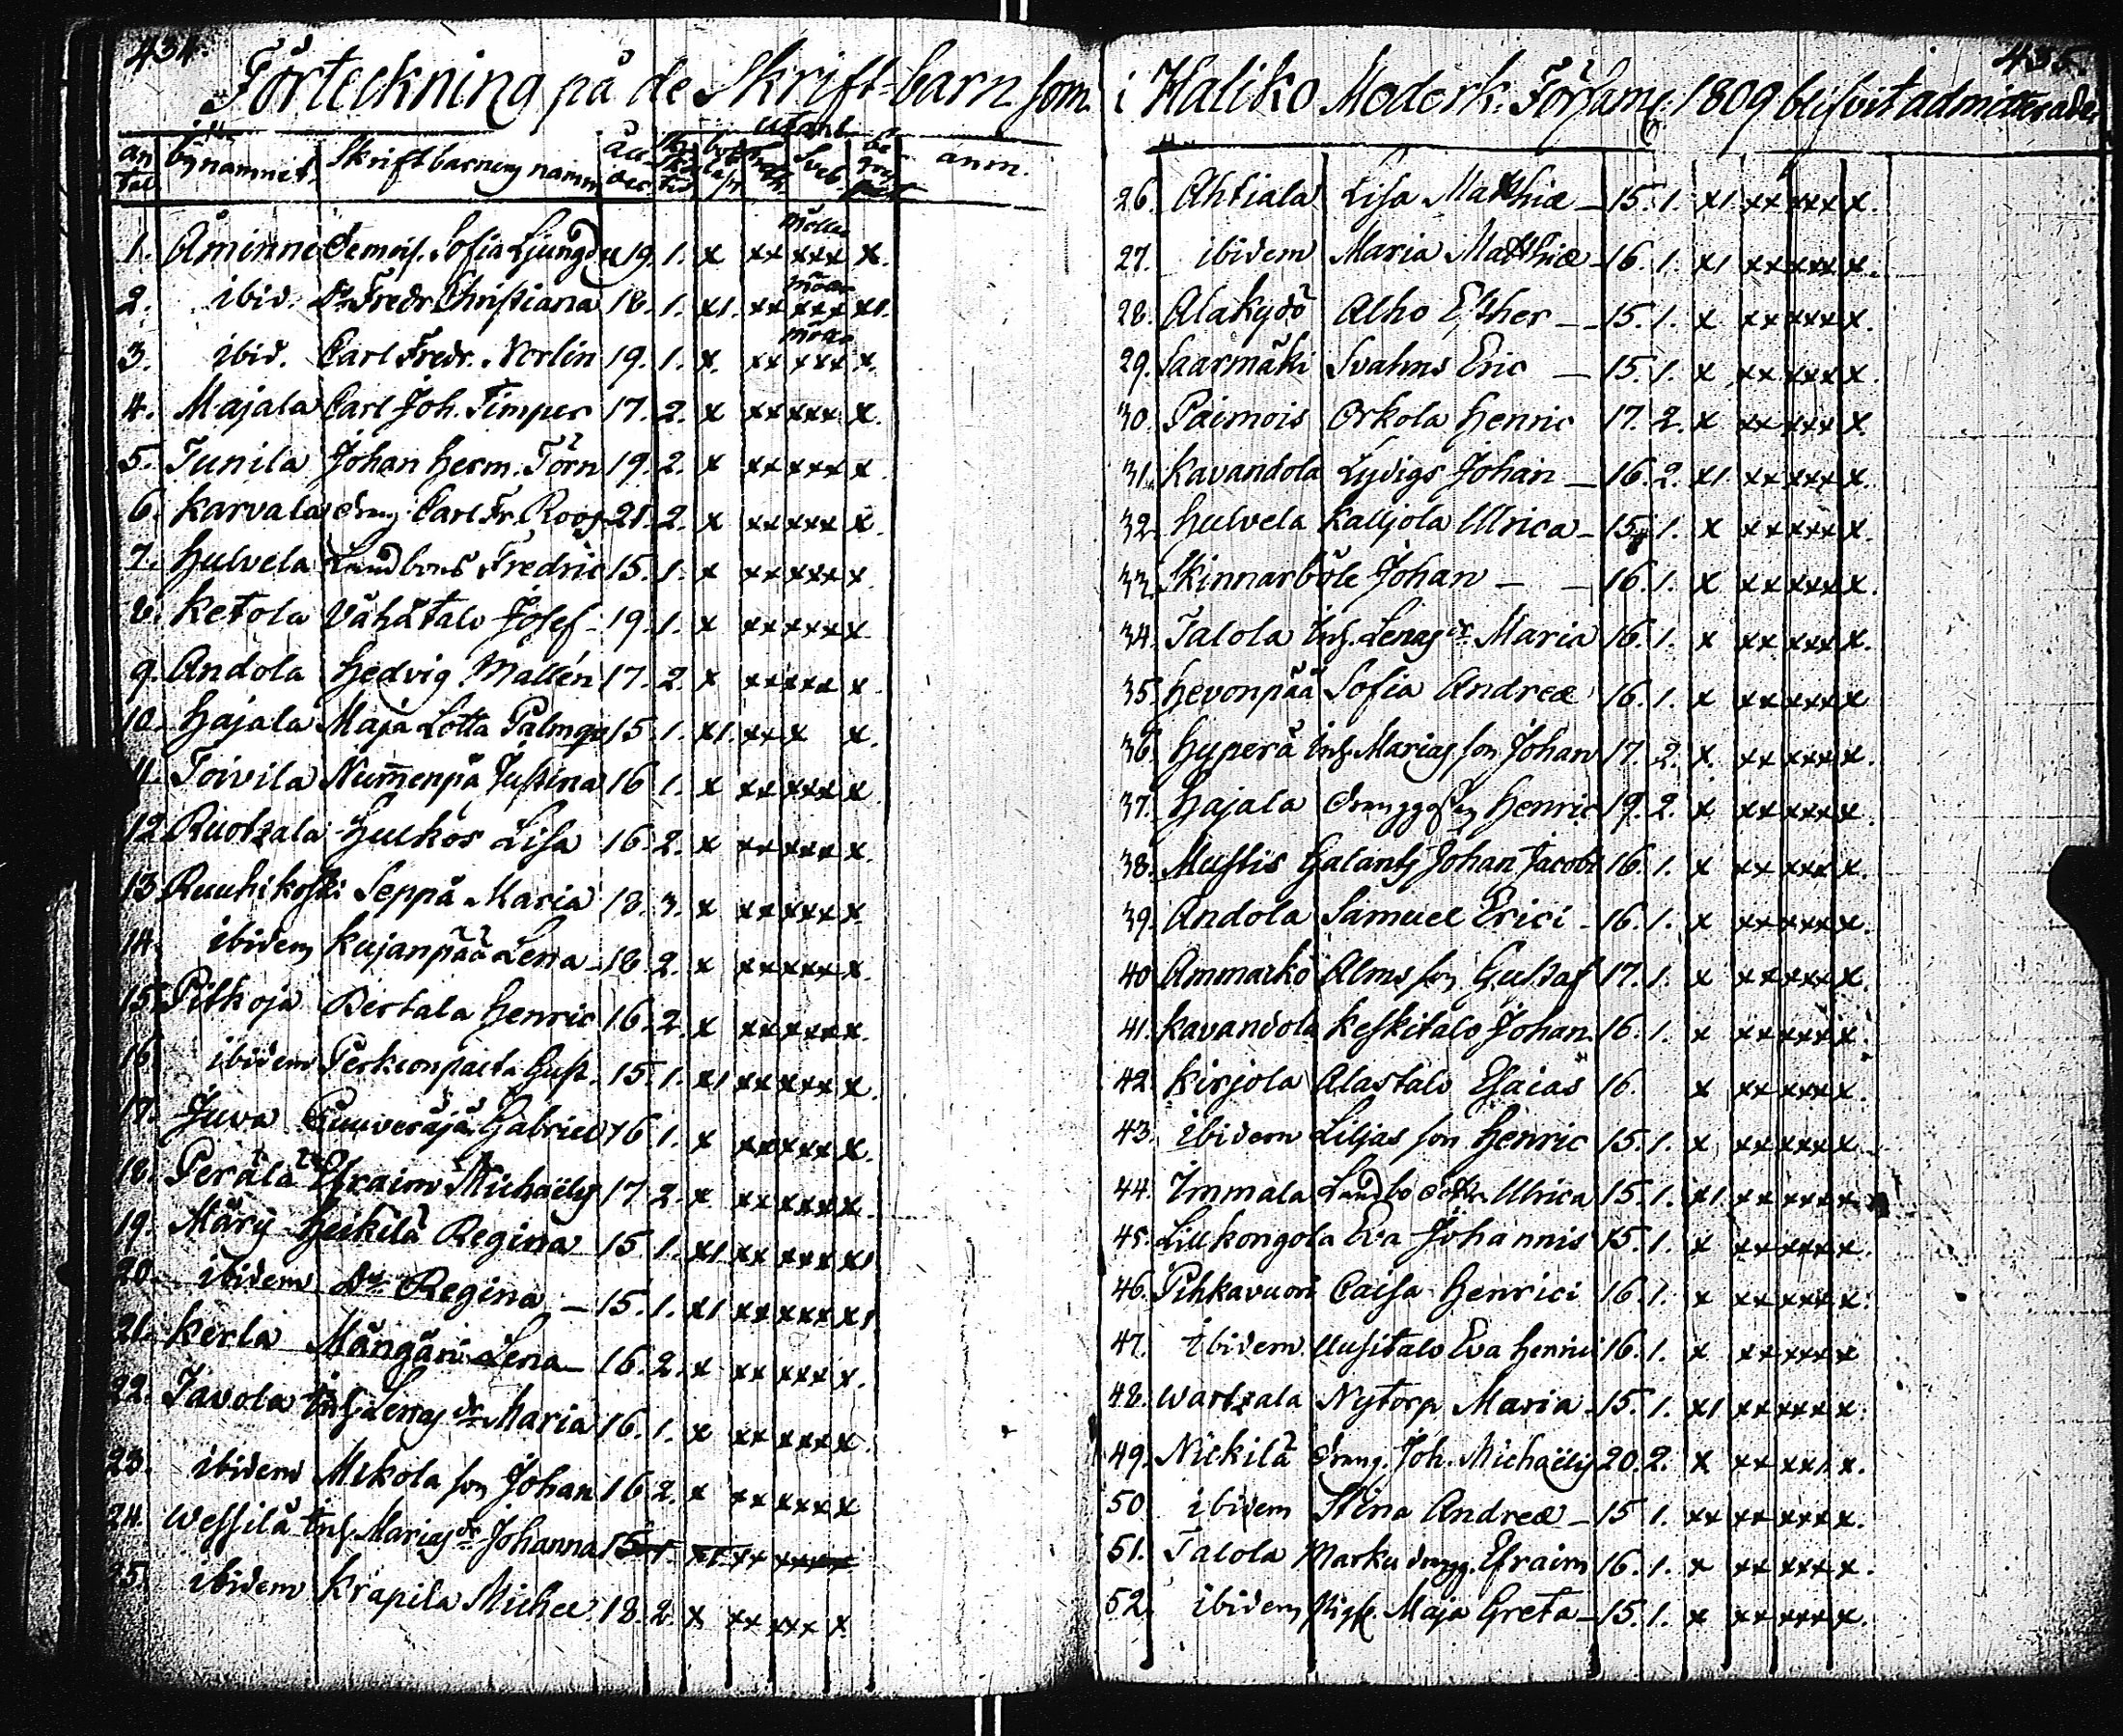 434.
Förteckning på de Skrift-barn som
an tal
bynamnet.
Skriftbarnens namn
ål der
utant
Sveb.
be grep
anm.
1. Åminne Demois. Sofia Ljung 19. 1. x xx xxx x.
2. ibid. Do Fredr. Christiana 18. 1. x1. xx xxx x1.
3. ibid. Carl Fredr. Norlin 19. 1. x. xx xxx x.
4. Majala Carl Joh. Timper 17. 2. x xx xxx x.
5. Tunila Johan Herm. Törn 19. 2. x xx xxx x.
6. Karvala dreng Carl Fr. Roos 21. 2. x xx xxx x.
7. Hulvela Landbons Fredric 15. 1. x xx xxx x.
8. Ketola Vähätalo Josef 19. 1. x xx xxx x.
9. Andola Hedvig Mallén 17. 2. x xx xxx x.
10. Hajala Maja Lotta Palmgr 15. 1. x1. xx x x.
11. Toivila Nummenpä Justina 16 1. x xx xxx x.
12. Ruotzala Hulkos Lisa 16. 2. x xx xxx x.
13. Ruuhikoski Seppä Maria 18. 3. x xx xxx x.
14. ibidem Kujanpää Lena 18. 2. x xx xxx x.
15. Pitkoja Bertala Henric 16. 2. x xx xxx x.
16. ibidem Gust. 15. 1. x1 xx xxx x.
17. Juva Gabriel 16. 1. x xx xxx x.
18. Perälä Efraim Michaëlis 17. 2. x xx xxx x.
19. Märy Heikilä Regina 15 1. x1 xx xxx x1
20. ibidem Do Regina 15. 1. x1 xx xxx x1
21. Kerla Mängäri Lena 16. 2. x xx xxx x.
22. Tavola Inh. Lenas dr Maria 16. 1. x xx xxx x.
23. ibidem Mikola son Johan 16 2. x xx xxx x
24. Wessilä Inh. Marias dr Johanna 15 1. x1 xx xxx x
25. ibidem Krapila Michel 18. 2. x xx xxx x.
435.
i Haliko Moderk. Församl: 1809 blifvit admitterade
26. Ahtiala Lisa Matthiæ 15. 1. x1 xx xxx x.
27. ibidem Maria Matthiæ 16. 1. x1 xx xxx x.
28. Alakydö Alho Esther 15. 1. x xx xxx x.
29. Saarmäki Svahns Eric 15. 1. x xx xxx x.
30. Paimois Orkola Henric 17. 2. x xx xxx x.
31. Kavandola Lyvigs Johan 16. 2. x1 xx xxx x.
32. Hulvela Kalljola Ulrica 15. 1. x xx xxx x.
33. Skinnarböle Johan 16. 1. x xx xxx x.
34. Talola Inh. Lenas dr Maria 16. 1. x xx xxx x.
35. Hevonpää Sofia Andreæ 16. 1. x xx xxx x
36. Hyperä Inh. Marias son Johan 17. 2. x. xx xxx x.
37. Hajala Henric 19. 2. x xx xxx x.
38. Mustis Galants Johan Jacobi 16. 1. x xx xxx x.
39. Andola Samuel Erici 16. 1. x xx xxx x.
40 Ammarkö Alms son Gustaf 17. 1. x xx xxx x.
41. Kavandola Keskitalo Johan 16. 1. x xx xxx x.
42. Kirjola Alastalo Esaias 16. x xx xxx x.
43. ibidem Liljas son Henric 15. 1. x xx xxx x.
44. Immala Landbo Ulrica 15. 1. x1 xx xxx x.
45. Liukongola Eva Johannis 15. 1. x xx xxx x.
46. Pihkavuori Caisa Henrici 16. 1. x xx xxx x.
47. ibidem Uusitalo Eva Henrici 16. 1. x xx xxx x
48. Wartzala Nytorp Maria 15. 1. x1 xx xxx x.
49. Nickilä dreng. Joh. Michaëlis 20. 2. x xx xxx x.
50 ibidem Stina Andreæ 15 1. xx xx xxx x.
51. Talola Marku drengg. Efraim 16. 1. x xx xxx x.
52. ibidem Pig. Maja Greta 15. 1. x xx xxx x.